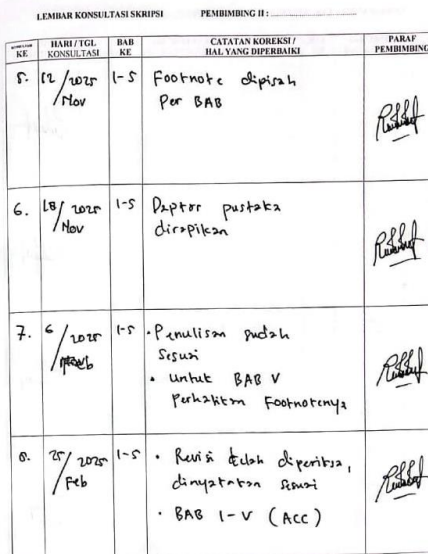 LEMBAR KONSULTASI SKRIPSI PEMBIMBING II :
KE HARI / TGL KONSULTASI BAB KE CATATAN KOREKSI / HAL YANG DIPERBAIKI PARAF PEMBIMBING
5. 12/2025 1-5 Footnote dipisah
Nov Per BAB
6. 18/2025 1-5 Daptar pustaka
Nov dirapikan
7. 6/2025 1-5 • Penulisan sudah
Feb Sesuai
• untuk BAB V
Perhatikan Footnotenya
8. 25/2025 1-5 • Revisi telah diperiksa,
Feb dinyatakan sesuai
• BAB I-V (ACC)